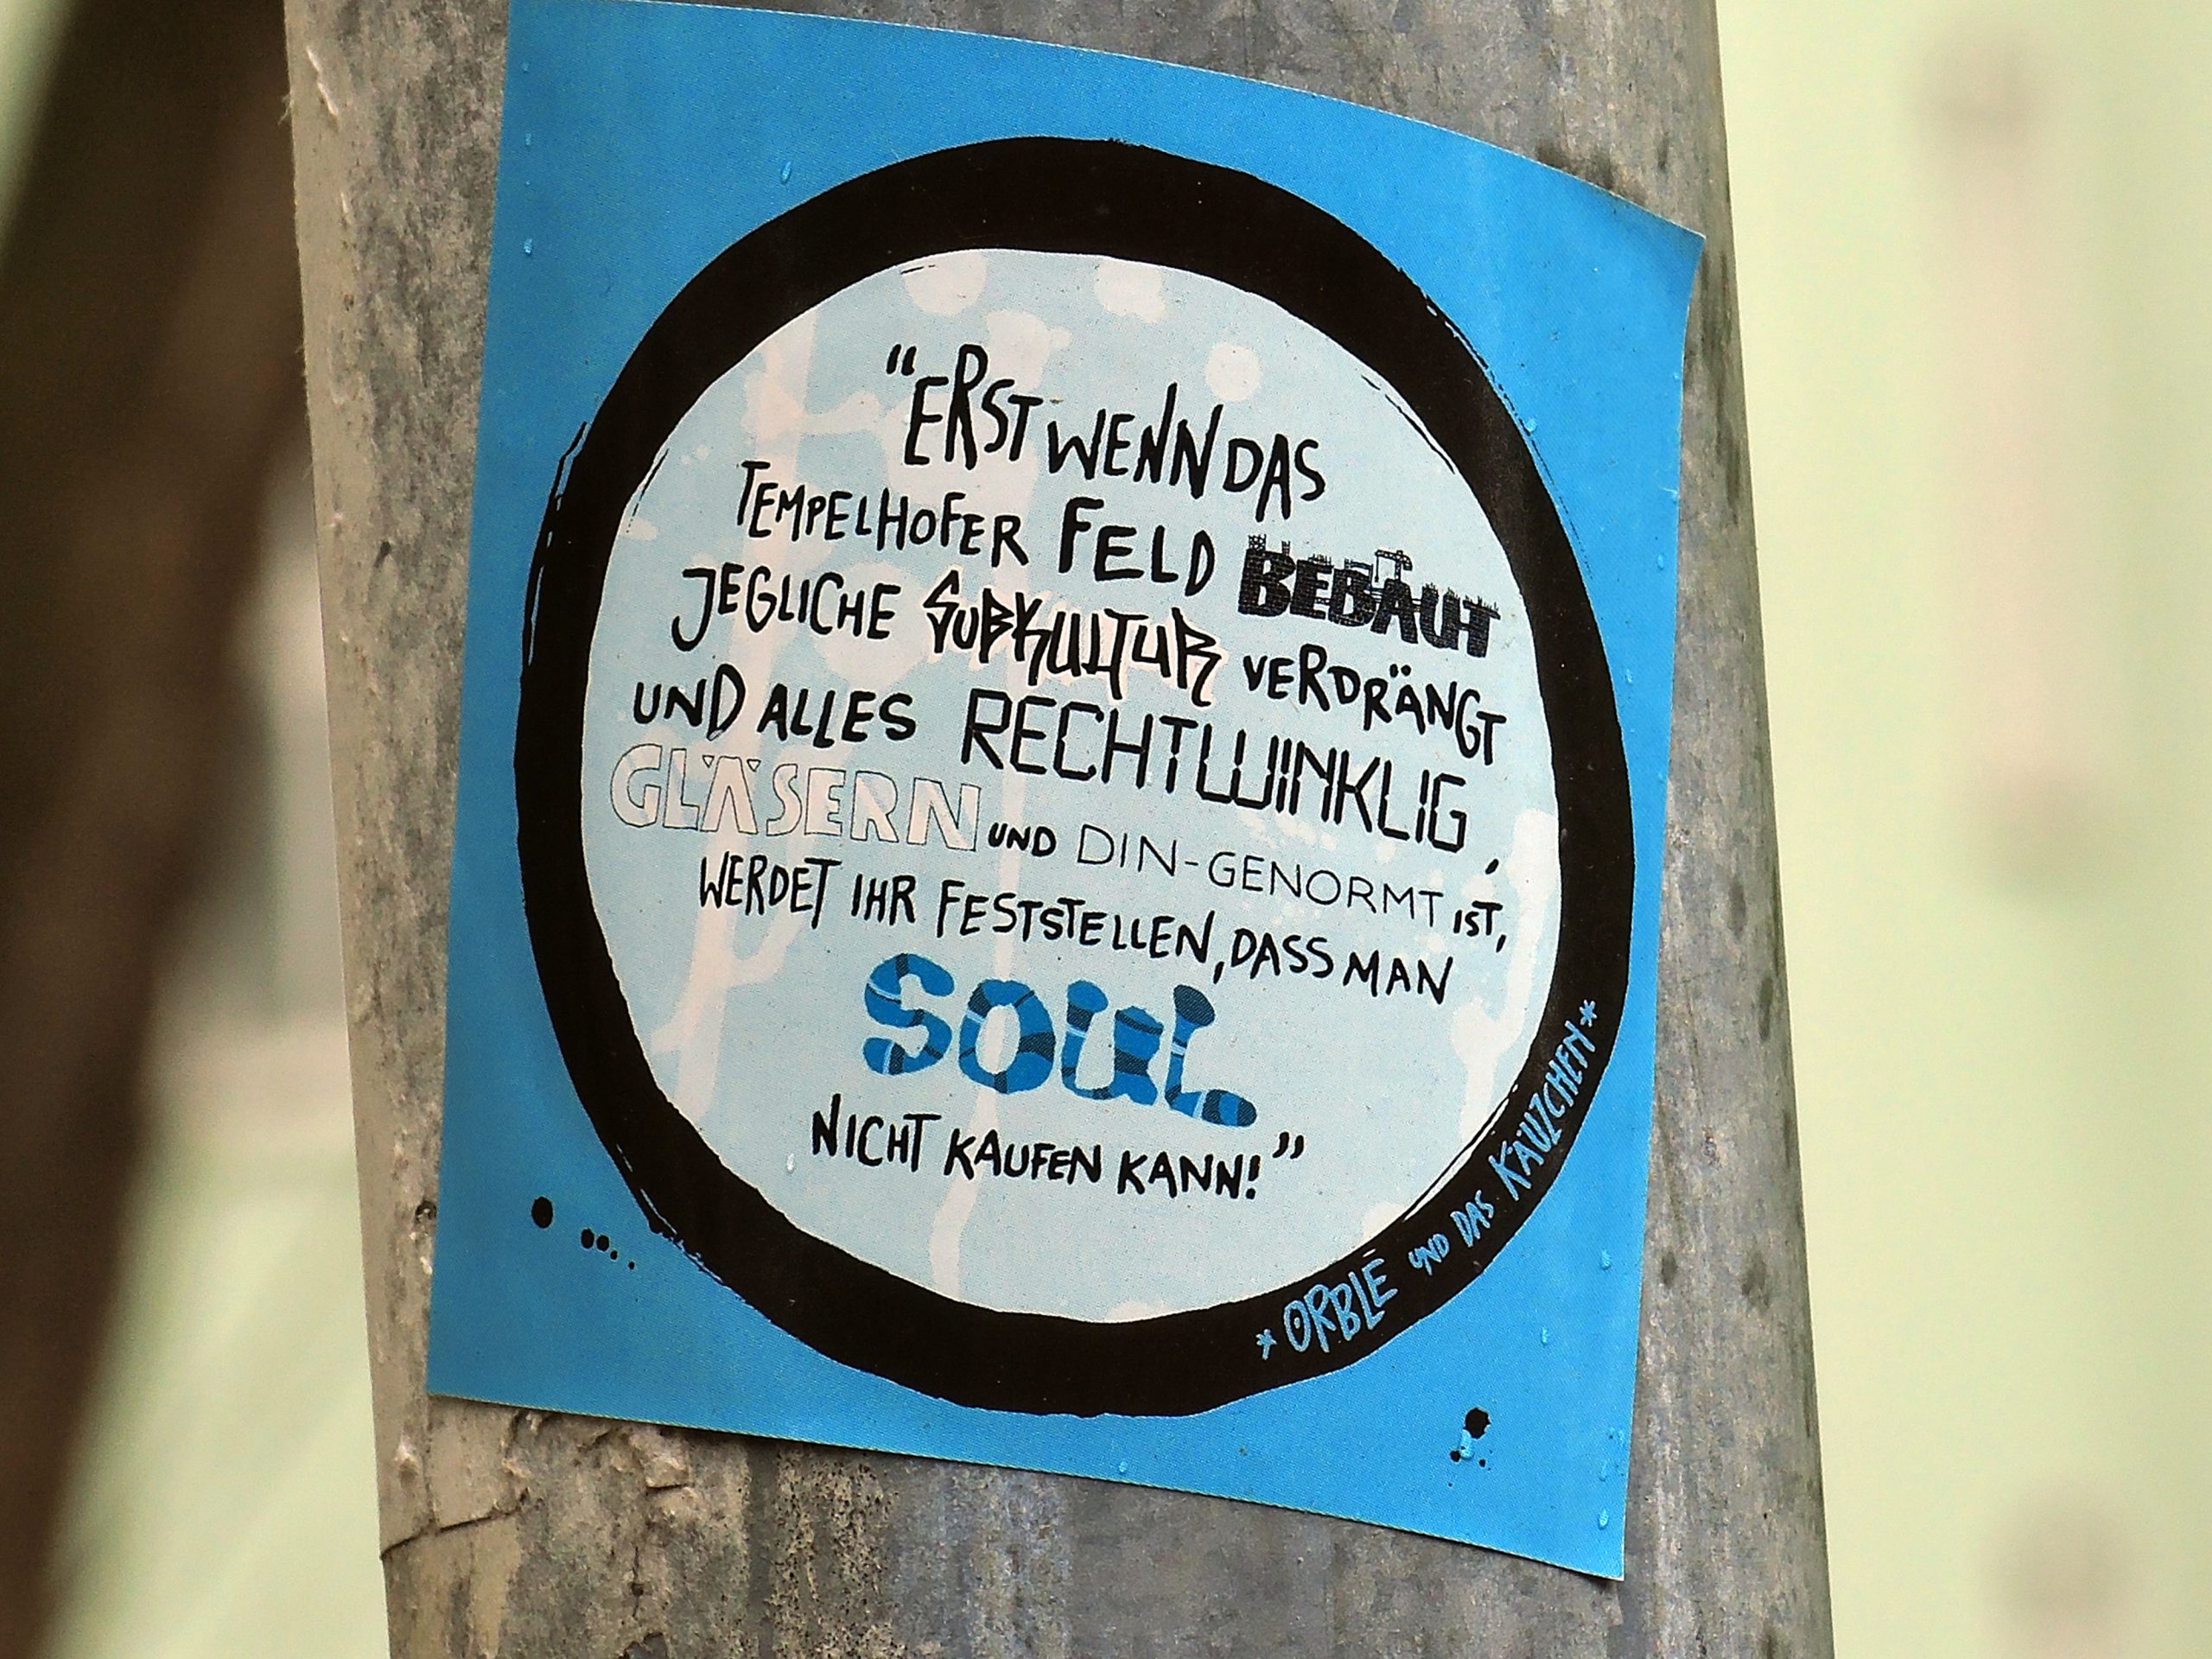 “ERST WENN DAS
TEMPELHOFER FELD BEBAUT
JEGLICHE SUBKULTUR VERDRÄNGT
UND ALLES RECHTWINKLIG,
GLÄSERN UND DIN-GENORMT IST,
WERDET IHR FESTSTELLEN, DASS MAN
SOUL
NICHT KAUFEN KANN!”
* ORBLE UND DAS KÄUZCHEN *